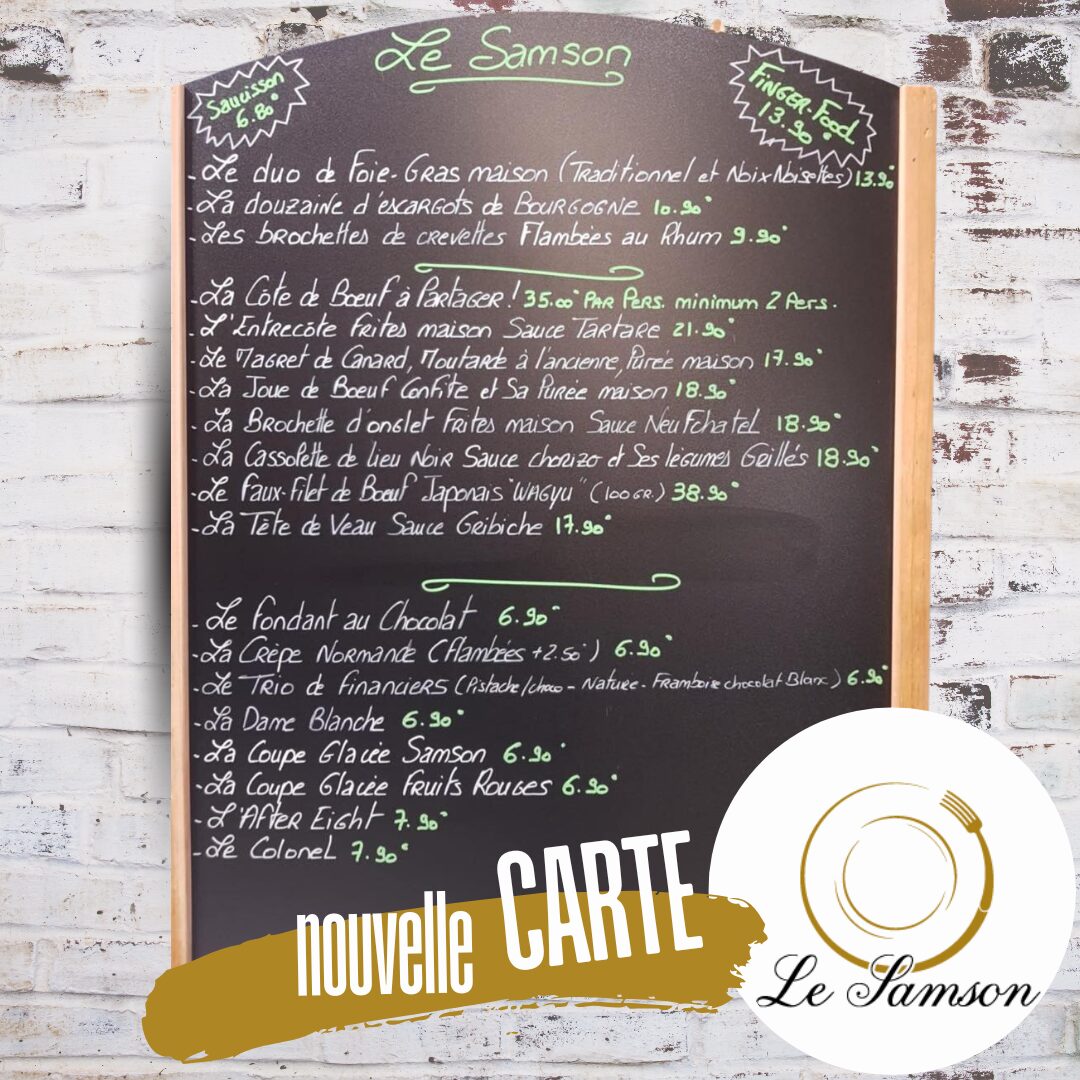 Le Samson
Saucisson
6.80
FINGER-Food
13.90
- Le duo de Foie-Gras maison (Traditionnel et Noix Noisettes) 13.90€
- La douzaine d'escargots de BOURGOGNE 10.90€
- Les brochettes de crevettes Flambées au Rhum 9.90€
- La Côte de Boeuf à Partager! 35.00€ PAR PERS. minimum 2 Pers.
- L'Entrecôte Frites maison Sauce Tartare 21.90€
- Le Magret de Canard, Moutarde à l'ancienne, Purée maison 17.90€
- La Joue de Boeuf Confite et Sa Purée maison 18.90€
- La Brochette d'onglet Frites maison Sauce Neufchatel 18.90€
- La Cassolette de Lieu Noir Sauce chorizo et Ses légumes Grillés 18.90€
- Le Faux-Filet de Boeuf Japonais "WAGYU" (100GR.) 38.90€
- La Tête de Veau Sauce Gribiche 17.90€
- Le Fondant au Chocolat 6.90€
- La Crêpe Normande (Flambées +2.50€) 6.90€
- Le Trio de Financiers (Pistache/choco - Nature - Framboise chocolat Blanc) 6.90€
- La Dame Blanche 6.90€
- La Coupe Glacée Samson 6.90€
- La Coupe Glacée Fruits Rouges 6.90€
- L'After Eight 7.90€
- Le Colonel 7.90€
nouvelle CARTE
Le Samson